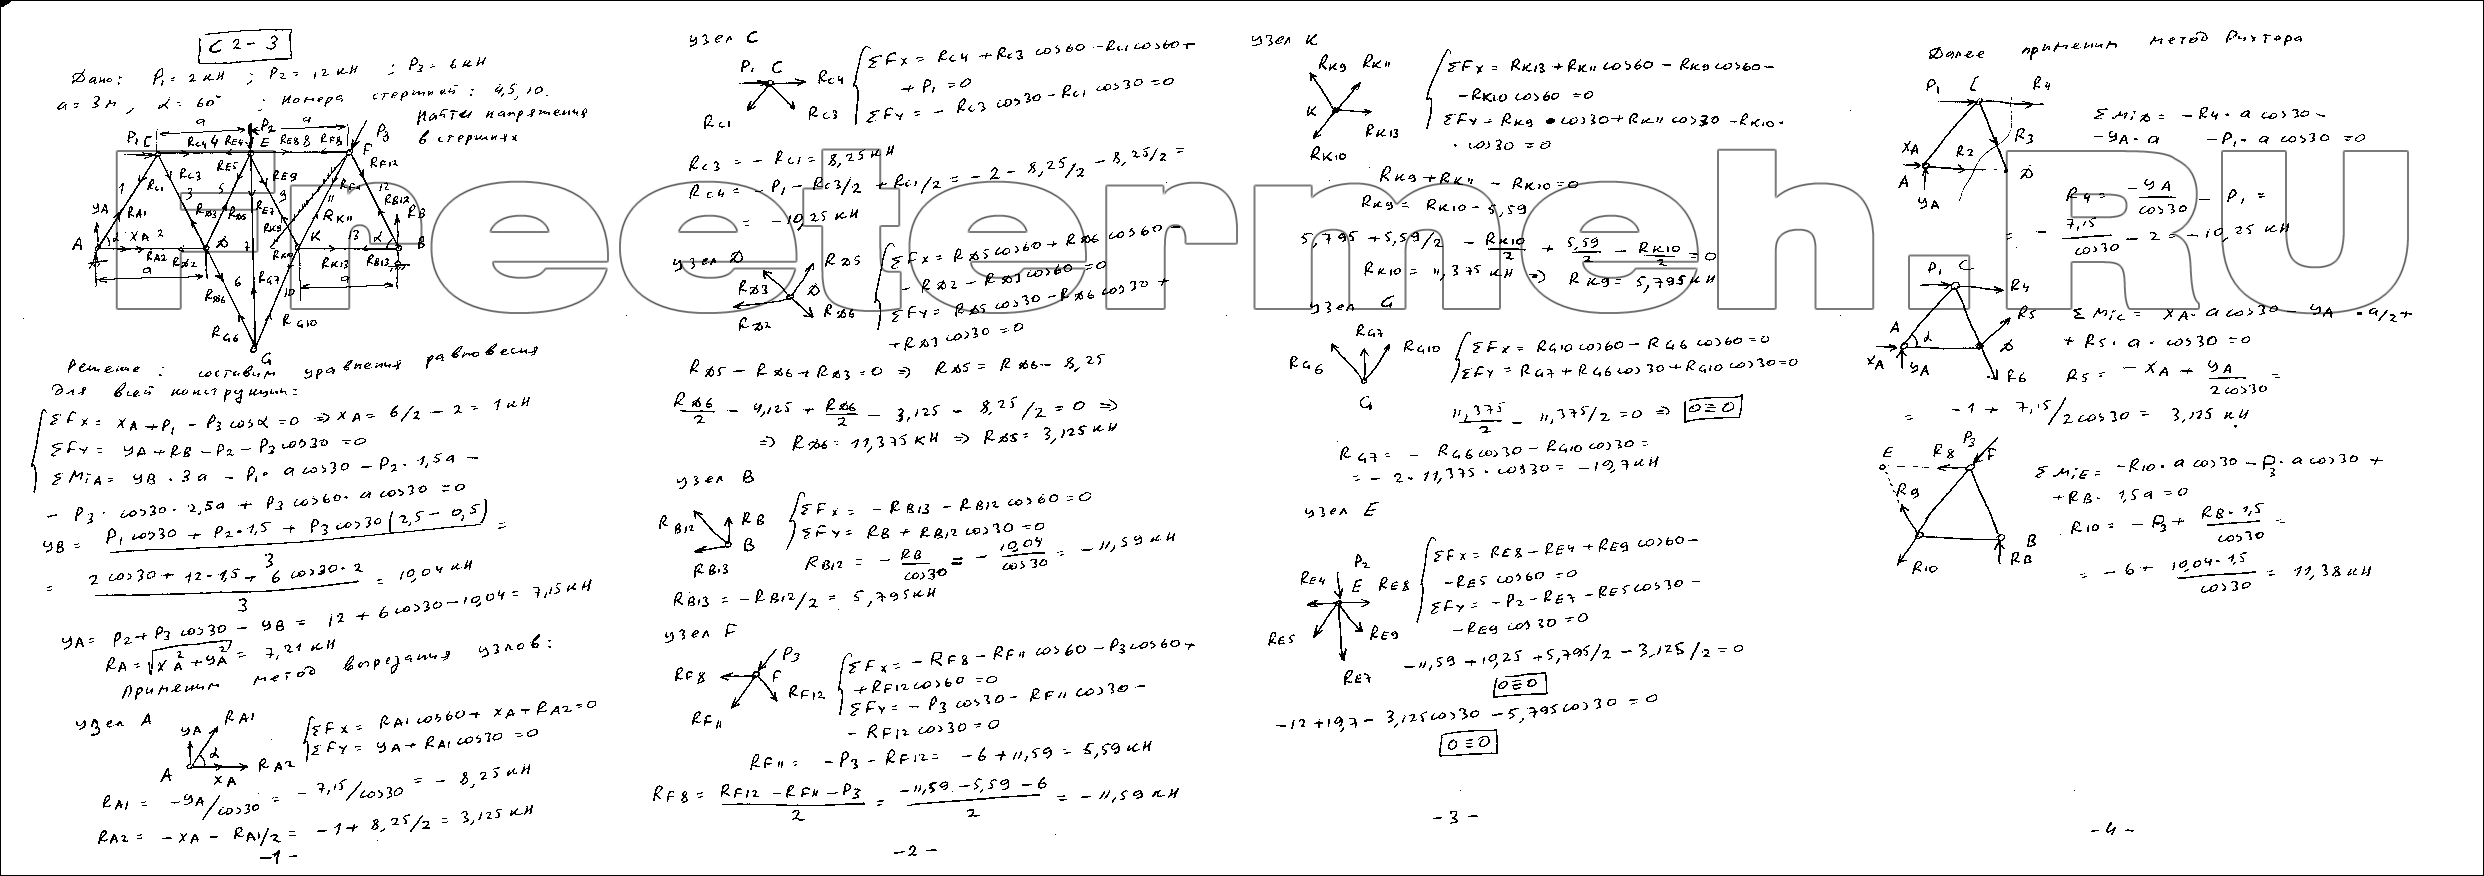 С 2 - 3
Дано: P₁ = 2 кН ; P₂ = 12 кН ; P₃ = 6 кН
a = 3 м, α = 60° ; Номера стержней: 4, 5, 10.
Найти напряжения
в стержнях
Решение: составим уравнения равновесия
для всей конструкции:
ΣFx = XA + P₁ - P₃ cosα = 0 ⇒ XA = 6/2 - 2 = 1 кН
ΣFY = YA + RB - P₂ - P₃ cos30 = 0
ΣMiA = YB · 3a - P₁ · a cos30 - P₂ · 1,5a -
- P₃ · cos30 · 2,5a + P₃ cos60 · a cos30 = 0
YB = (P₁ cos30 + P₂ · 1,5 + P₃ cos30 (2,5 - 0,5)) / 3 =
= (2 cos30 + 12 · 1,5 + 6 cos30 · 2) / 3 = 10,04 кН
YA = P₂ + P₃ cos30 - YB = 12 + 6 cos30 - 10,04 = 7,15 кН
RA = √(XA² + YA²) = 7,21 кН
Применим метод вырезания узлов:
Узел A
YA RA1
α
A XA RA2
ΣFx = RA1 cos60 + XA + RA2 = 0
ΣFY = YA + RA1 cos30 = 0
RA1 = -YA/cos30 = -7,15/cos30 = -8,25 кН
RA2 = -XA - RA1/2 = -1 + 8,25/2 = 3,125 кН
-1-
узел C
P₁ C RC4
RC1 RC3
ΣFx = RC4 + RC3 cos60 - RC1 cos60 +
+ P₁ = 0
ΣFY = - RC3 cos30 - RC1 cos30 = 0
RC3 = - RC1 = 8,25 кН
RC4 = - P₁ - RC3/2 + RC1/2 = -2 - 8,25/2 - 8,25/2 =
= -10,25 кН
узел D
RD3 RD5
D
RD2 RD6
ΣFx = RD5 cos60 + RD6 cos60 -
- RD2 - RD3 cos60 = 0
ΣFY = RD5 cos30 - RD6 cos30 +
+ RD3 cos30 = 0
RD5 - RD6 + RD3 = 0 ⇒ RD5 = RD6 - 8,25
RD6/2 - 4,125 + RD6/2 - 3,125 - 8,25/2 = 0 ⇒
⇒ RD6 = 11,375 кН ⇒ RD5 = 3,125 кН
узел B
RB12 RB
B
RB13
ΣFx = - RB13 - RB12 cos60 = 0
ΣFY = RB + RB12 cos30 = 0
RB12 = - RB/cos30 = - 10,04/cos30 = -11,59 кН
RB13 = - RB12/2 = 5,795 кН
узел F
P₃
RF8 F
RF12
RF11
ΣFx = - RF8 - RF11 cos60 - P₃ cos60 +
+ RF12 cos60 = 0
ΣFY = - P₃ cos30 - RF11 cos30 -
- RF12 cos30 = 0
RF11 = - P₃ - RF12 = -6 + 11,59 = 5,59 кН
RF8 = (RF12 - RF11 - P₃)/2 = (-11,59 - 5,59 - 6)/2 = -11,59 кН
-2-
узел K
RK9 RK11
K
RK13
RK10
ΣFx = RK13 + RK11 cos60 - RK9 cos60 -
- RK10 cos60 = 0
ΣFY = RK9 · cos30 + RK11 cos30 - RK10 ·
· cos30 = 0
RK9 + RK11 - RK10 = 0
RK9 = RK10 - 5,59
5,795 + 5,59/2 - RK10/2 + 5,59/2 - RK10/2 = 0
RK10 = 11,375 кН ⇒ RK9 = 5,795 кН
узел G
RG7
RG6 RG10
G
ΣFx = RG10 cos60 - RG6 cos60 = 0
ΣFY = RG7 + RG6 cos30 + RG10 cos30 = 0
11,375/2 - 11,375/2 = 0 ⇒ 0 ≡ 0
RG7 = - RG6 cos30 - RG10 cos30 =
= - 2 · 11,375 · cos30 = -19,7 кН
узел E
P₂
RE4 E RE8
RE5 RE9
RE7
ΣFx = RE8 - RE4 + RE9 cos60 -
- RE5 cos60 = 0
ΣFY = - P₂ - RE7 - RE5 cos30 -
- RE9 cos30 = 0
-11,59 + 10,25 + 5,795/2 - 3,125/2 = 0
0 ≡ 0
-12 + 19,7 - 3,125 cos30 - 5,795 cos30 = 0
0 ≡ 0
-3-
Далее применим метод Риттера
P₁ C R4
R3
XA R2
A D
YA
ΣMiD = - R4 · a cos30 -
- YA · a - P₁ · a cos30 = 0
R4 = -YA/cos30 - P₁ =
= - 7,15/cos30 - 2 = -10,25 кН
P₁ C
R4
A α R5
D
XA YA R6
ΣMiC = XA · a cos30 - YA · a/2 +
+ R5 · a · cos30 = 0
R5 = - XA + YA/2cos30 =
= -1 + 7,15/2cos30 = 3,125 кН
E R8 P₃ F
R9
B
R10 RB
ΣMiE = - R10 · a cos30 - P₃ · a cos30 +
+ RB · 1,5a = 0
R10 = - P₃ + RB · 1,5/cos30 =
= -6 + 10,04 · 1,5/cos30 = 11,38 кН
-4-
Freetermeh.RU